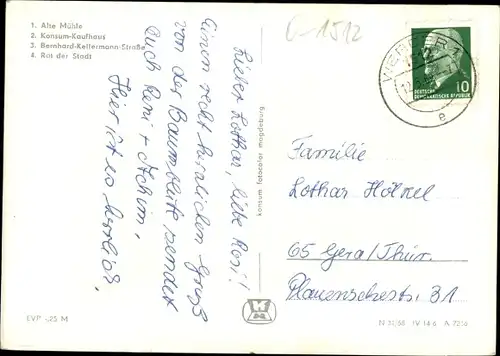 1. Alte Mühle
2. Konsum-Kaufhaus
3. Bernhard-Kellermann-Straße
4. Rat der Stadt
G-1512
WERDER 1
e
DEUTSCHE
DEMOKRATISCHE REPUBLIK
10
Lieber Lothar, liebe Rosi!
Einen recht herzlichen Gruß
von der Baumblüte sendet
Euch Reni + Achim,
Hier ist es herrlich,
konsum fotocolor magdeburg
Familie
Lothar Hölzel
65 Gera/Thür.
Plauenschestr. 31
EVP -,25 M
N 51/68 IV 14 6 A 7216